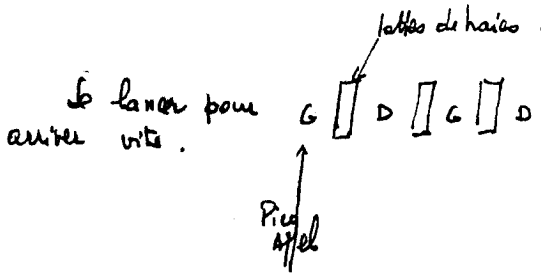 lattes de haies
Se lancer pour
arriver vite.
G D G D
Pied
Appel